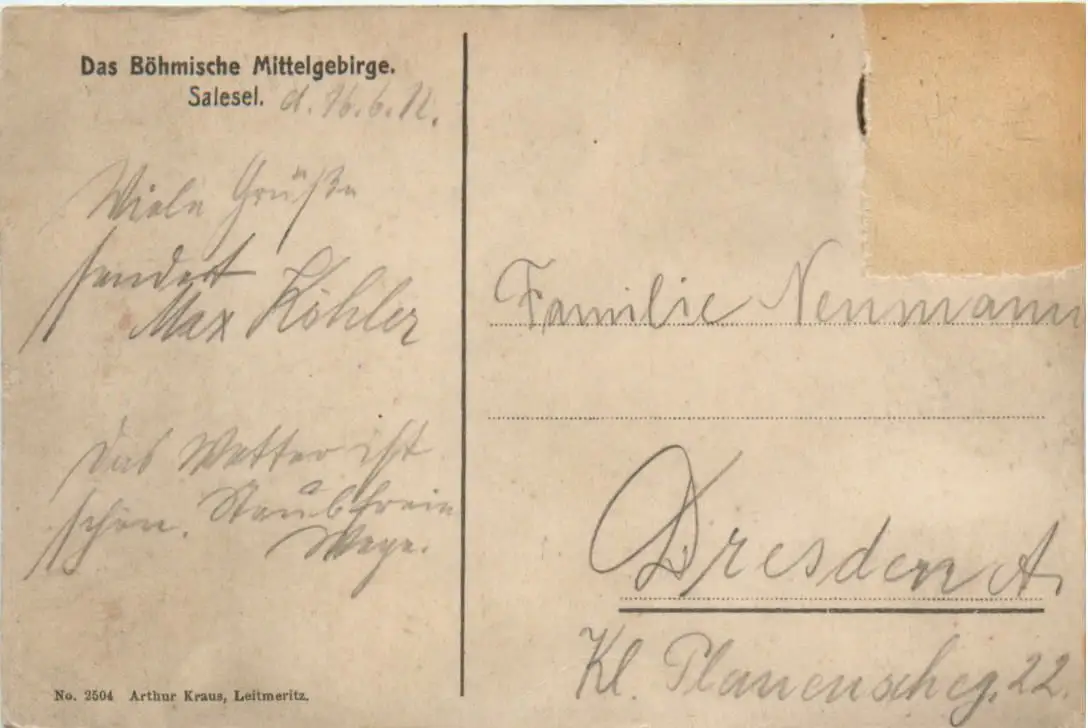 Das Böhmische Mittelgebirge.
Salesel. d. 16.6.12.
Viele Grüße
sendet
Max Köhler
Das Wetter ist
schön. Staubfreie
Wege.
No. 2504 Arthur Kraus, Leitmeritz.
Familie Neumann
Dresden A.
Kl. Plauenscheg. 22.